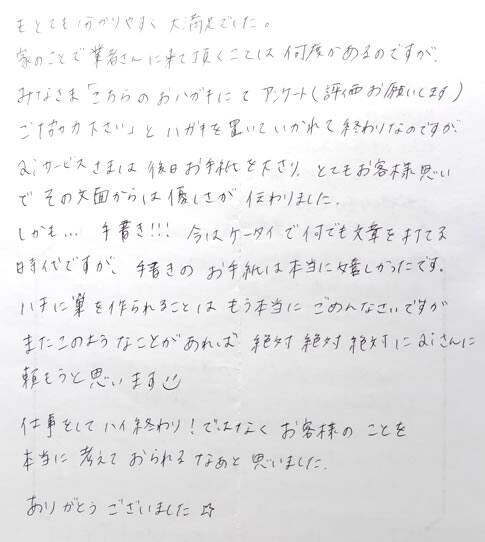 もとても分かりやすく大満足でした。
家のことで業者さんに来て頂くことは何度かあるのですが、
みなさま「こちらのおハガキにてアンケート(評価お願いします)
ご協力下さい」とハガキを置いていかれて終わりなのですが、
aiサービスさまは後日お手紙を下さり、とてもお客様思い
でその文面からは優しさが伝わりました。
しかも… 手書き!!! 今はケータイで何でも文章を打てる
時代ですが、手書きのお手紙は本当に嬉しかったです。
ハチに巣を作られることはもう本当にごめんなさいですが
またこのようなことがあれば絶対絶対絶対にaiさんに
頼もうと思います☺
仕事をしてハイ終わり!ではなくお客様のことを
本当に考えておられるなあと思いました。
ありがとうございました☆